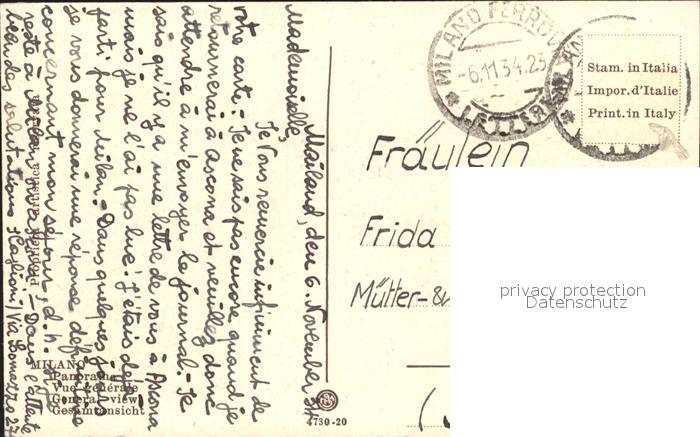 Mailand, den 6. November 34
Mademoiselle,
Je vous remercie infiniment de
votre carte. Je ne sais pas encore quand je
retournerai à Ascona et veuillez donc
attendre à m'envoyer le journal. Je
sais qu'il y a une lettre de vous à Ascona
mais je ne l'ai pas lue: j'étais déjà
parti pour Milan. Dans quelques jours
je vous donnerai une réponse définitive
concernant mon séjour, d.h.
reste à Milan ou à Ascona. Dans l'attente
salutations Via
MILANO
Panorama
Vue générale
General view
Gesamtansicht
4730-20
MILANO FERROVIA
-6.11.34.23
LETTERE
Stam. in Italia
Impor. d'Italie
Print. in Italy
Fräulein
Frida
Mütter- &
privacy protection
Datenschutz